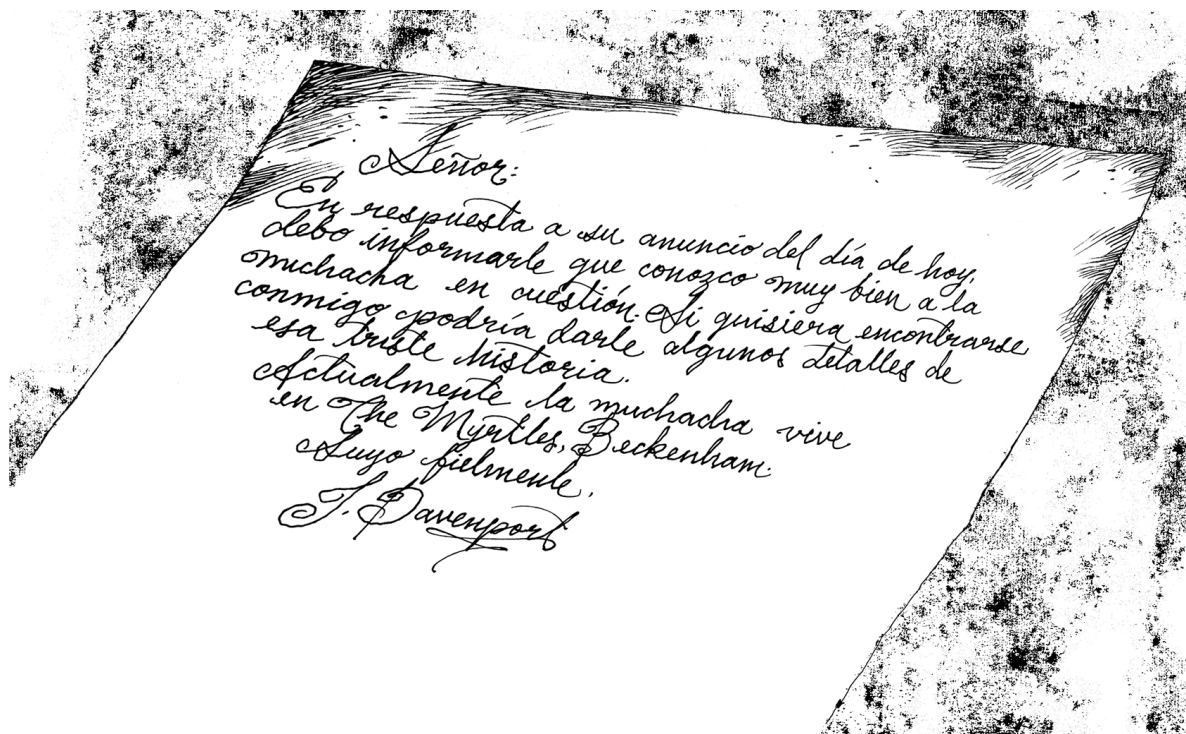 Señor:
En respuesta a su anuncio del día de hoy,
debo informarle que conozco muy bien a la
muchacha en cuestión. Si quisiera encontrarse
conmigo podría darle algunos detalles de
esa triste historia.
Actualmente la muchacha vive
en The Myrtles, Beckenham.
Suyo fielmente,
J. Davenport